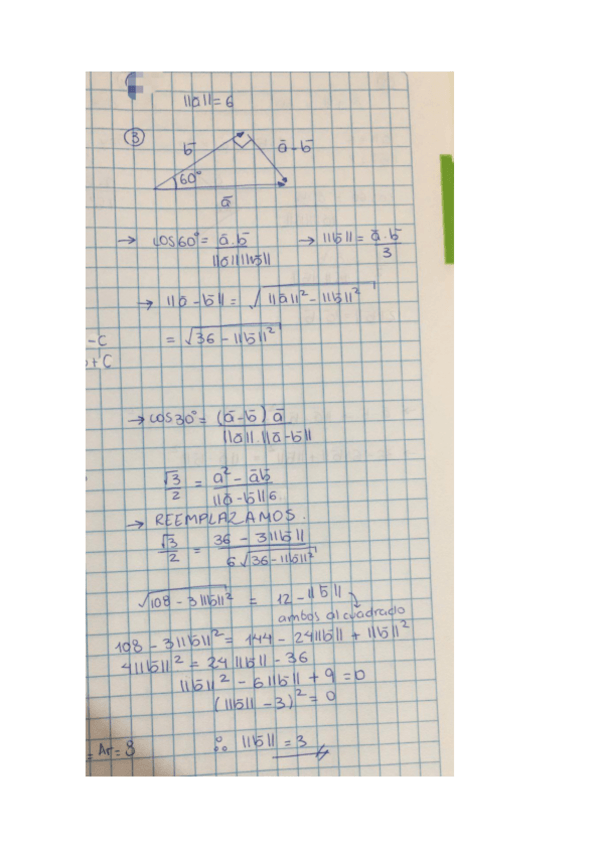 ||ā|| = 6
③
b̄
ā - b̄
60°
ā
→ cos60° = ā.b̄ / ||ā||||b̄|| → ||b̄|| = ā.b̄ / 3
→ ||ā - b̄|| = √(||ā||² - ||b̄||²)
= √(36 - ||b̄||²)
- C
+ C
→ cos30° = (ā-b̄) ā / ||ā||.||ā-b̄||
√3/2 = a² - āb̄ / ||ā-b̄||6
→ REEMPLAZAMOS.
√3/2 = 36 - 3||b̄|| / 6√(36-||b̄||²)
√(108 - 3||b̄||²) = 12 - ||b̄||
ambos al cuadrado
108 - 3||b̄||² = 144 - 24||b̄|| + ||b̄||²
4||b̄||² = 24||b̄|| - 36
||b̄||² - 6||b̄|| + 9 = 0
(||b̄|| - 3)² = 0
∴ ||b̄|| = 3